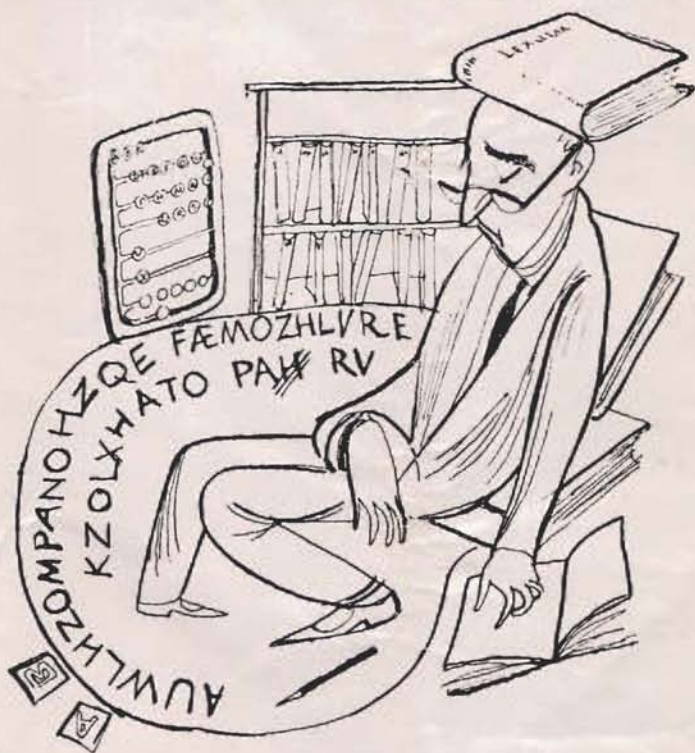 LEXICON
AUWLHZOMPANOHZQE FÆMOZHLVRE
KZOLXHATO PAH RV
A
B